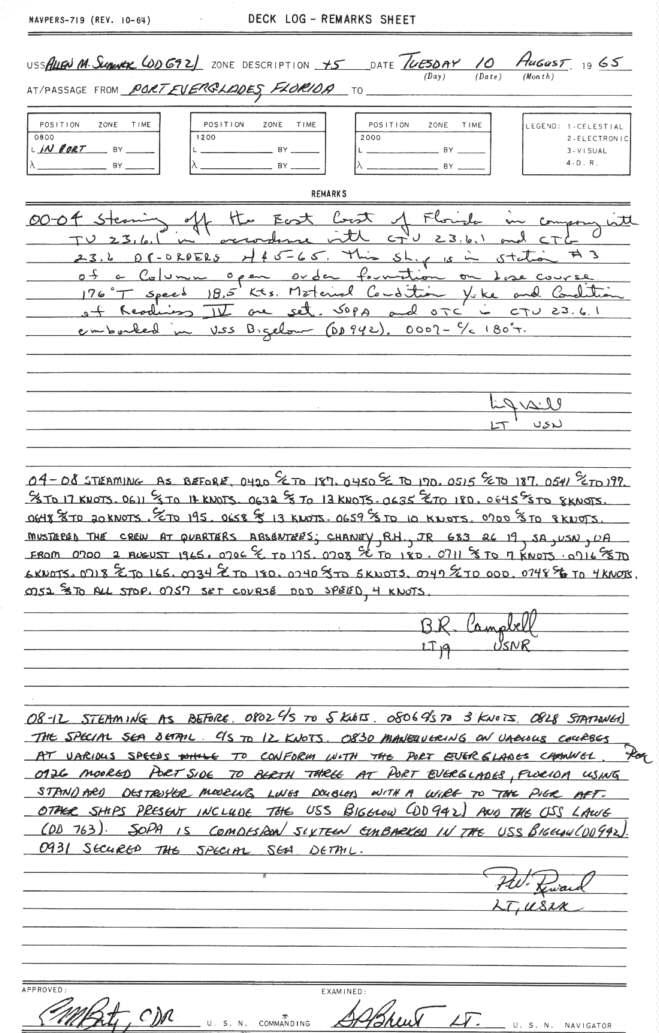 NAVPERS-719 (REV. 10-64) DECK LOG – REMARKS SHEET
USS ALLEN M. SUMNER (DD 692) ZONE DESCRIPTION +5 DATE TUESDAY 10 AUGUST 19 65
(Day) (Date) (Month)
AT/PASSAGE FROM PORT EVERGLADES, FLORIDA TO
POSITION ZONE TIME POSITION ZONE TIME POSITION ZONE TIME LEGEND: 1-CELESTIAL
0800 1200 2000 2-ELECTRONIC
L IN PORT BY L BY L BY 3-VISUAL
λ BY λ BY λ BY 4-D. R.
REMARKS
00-04 Steaming off the East Coast of Florida in company with
TU 23.6.1 in accordance with CTU 23.6.1 and CTG
23.6 OP-ORDERS 4-65. This ship is in station #3
of a Column open order formation on base course
176°T speed 18.5 kts. Material Condition Yoke and Condition
of Readiness IV are set. SOPA and OTC is CTU 23.6.1
embarked in USS Bigelow (DD 942). 0007- C/c 180°T.
LT USN
04-08 STEAMING AS BEFORE. 0420 C/C TO 187. 0450 C/C TO 170. 0515 C/C TO 187. 0541 C/C TO 197.
C/S TO 17 KNOTS. 0611 C/S TO 12 KNOTS. 0632 C/S TO 13 KNOTS. 0635 C/C TO 180. 0645 C/S TO 8 KNOTS.
0648 C/S TO 20 KNOTS. C/C TO 195. 0658 C/S 13 KNOTS. 0659 C/S TO 10 KNOTS. 0700 C/S TO 8 KNOTS.
MUSTERED THE CREW AT QUARTERS ABSENTEES; CHANEY, R.H., JR 683 26 19, SA, USN, UA
FROM 0700 2 AUGUST 1965. 0706 C/C TO 175. 0708 C/C TO 180. 0711 C/S TO 7 KNOTS. 0716 C/S TO
6 KNOTS. 0718 C/C TO 165. 0734 C/C TO 180. 0740 C/S TO 5 KNOTS. 0747 C/C TO 000. 0748 C/S TO 4 KNOTS.
0752 C/S TO ALL STOP. 0757 SET COURSE 000 SPEED, 4 KNOTS.
B.R. Campbell
LTJG USNR
08-12 STEAMING AS BEFORE. 0802 C/S TO 5 KNOTS. 0806 C/S TO 3 KNOTS. 0828 STATIONED
THE SPECIAL SEA DETAIL. C/S TO 12 KNOTS. 0830 MANEUVERING ON VARIOUS COURSES
AT VARIOUS SPEEDS WHILE TO CONFORM WITH THE PORT EVERGLADES CHANNEL.
0926 MOORED PORT SIDE TO BERTH THREE AT PORT EVERGLADES, FLORIDA USING
STANDARD DESTROYER MOORING LINES DOUBLED WITH A WIRE TO THE PIER AFT.
OTHER SHIPS PRESENT INCLUDE THE USS BIGELOW (DD 942) AND THE USS LAWE
(DD 763). SOPA IS COMDESRON SIXTEEN EMBARKED IN THE USS BIGELOW (DD 942).
0931 SECURED THE SPECIAL SEA DETAIL.
LT, USNR
APPROVED: EXAMINED:
CDR U. S. N. COMMANDING LT. U. S. N. NAVIGATOR